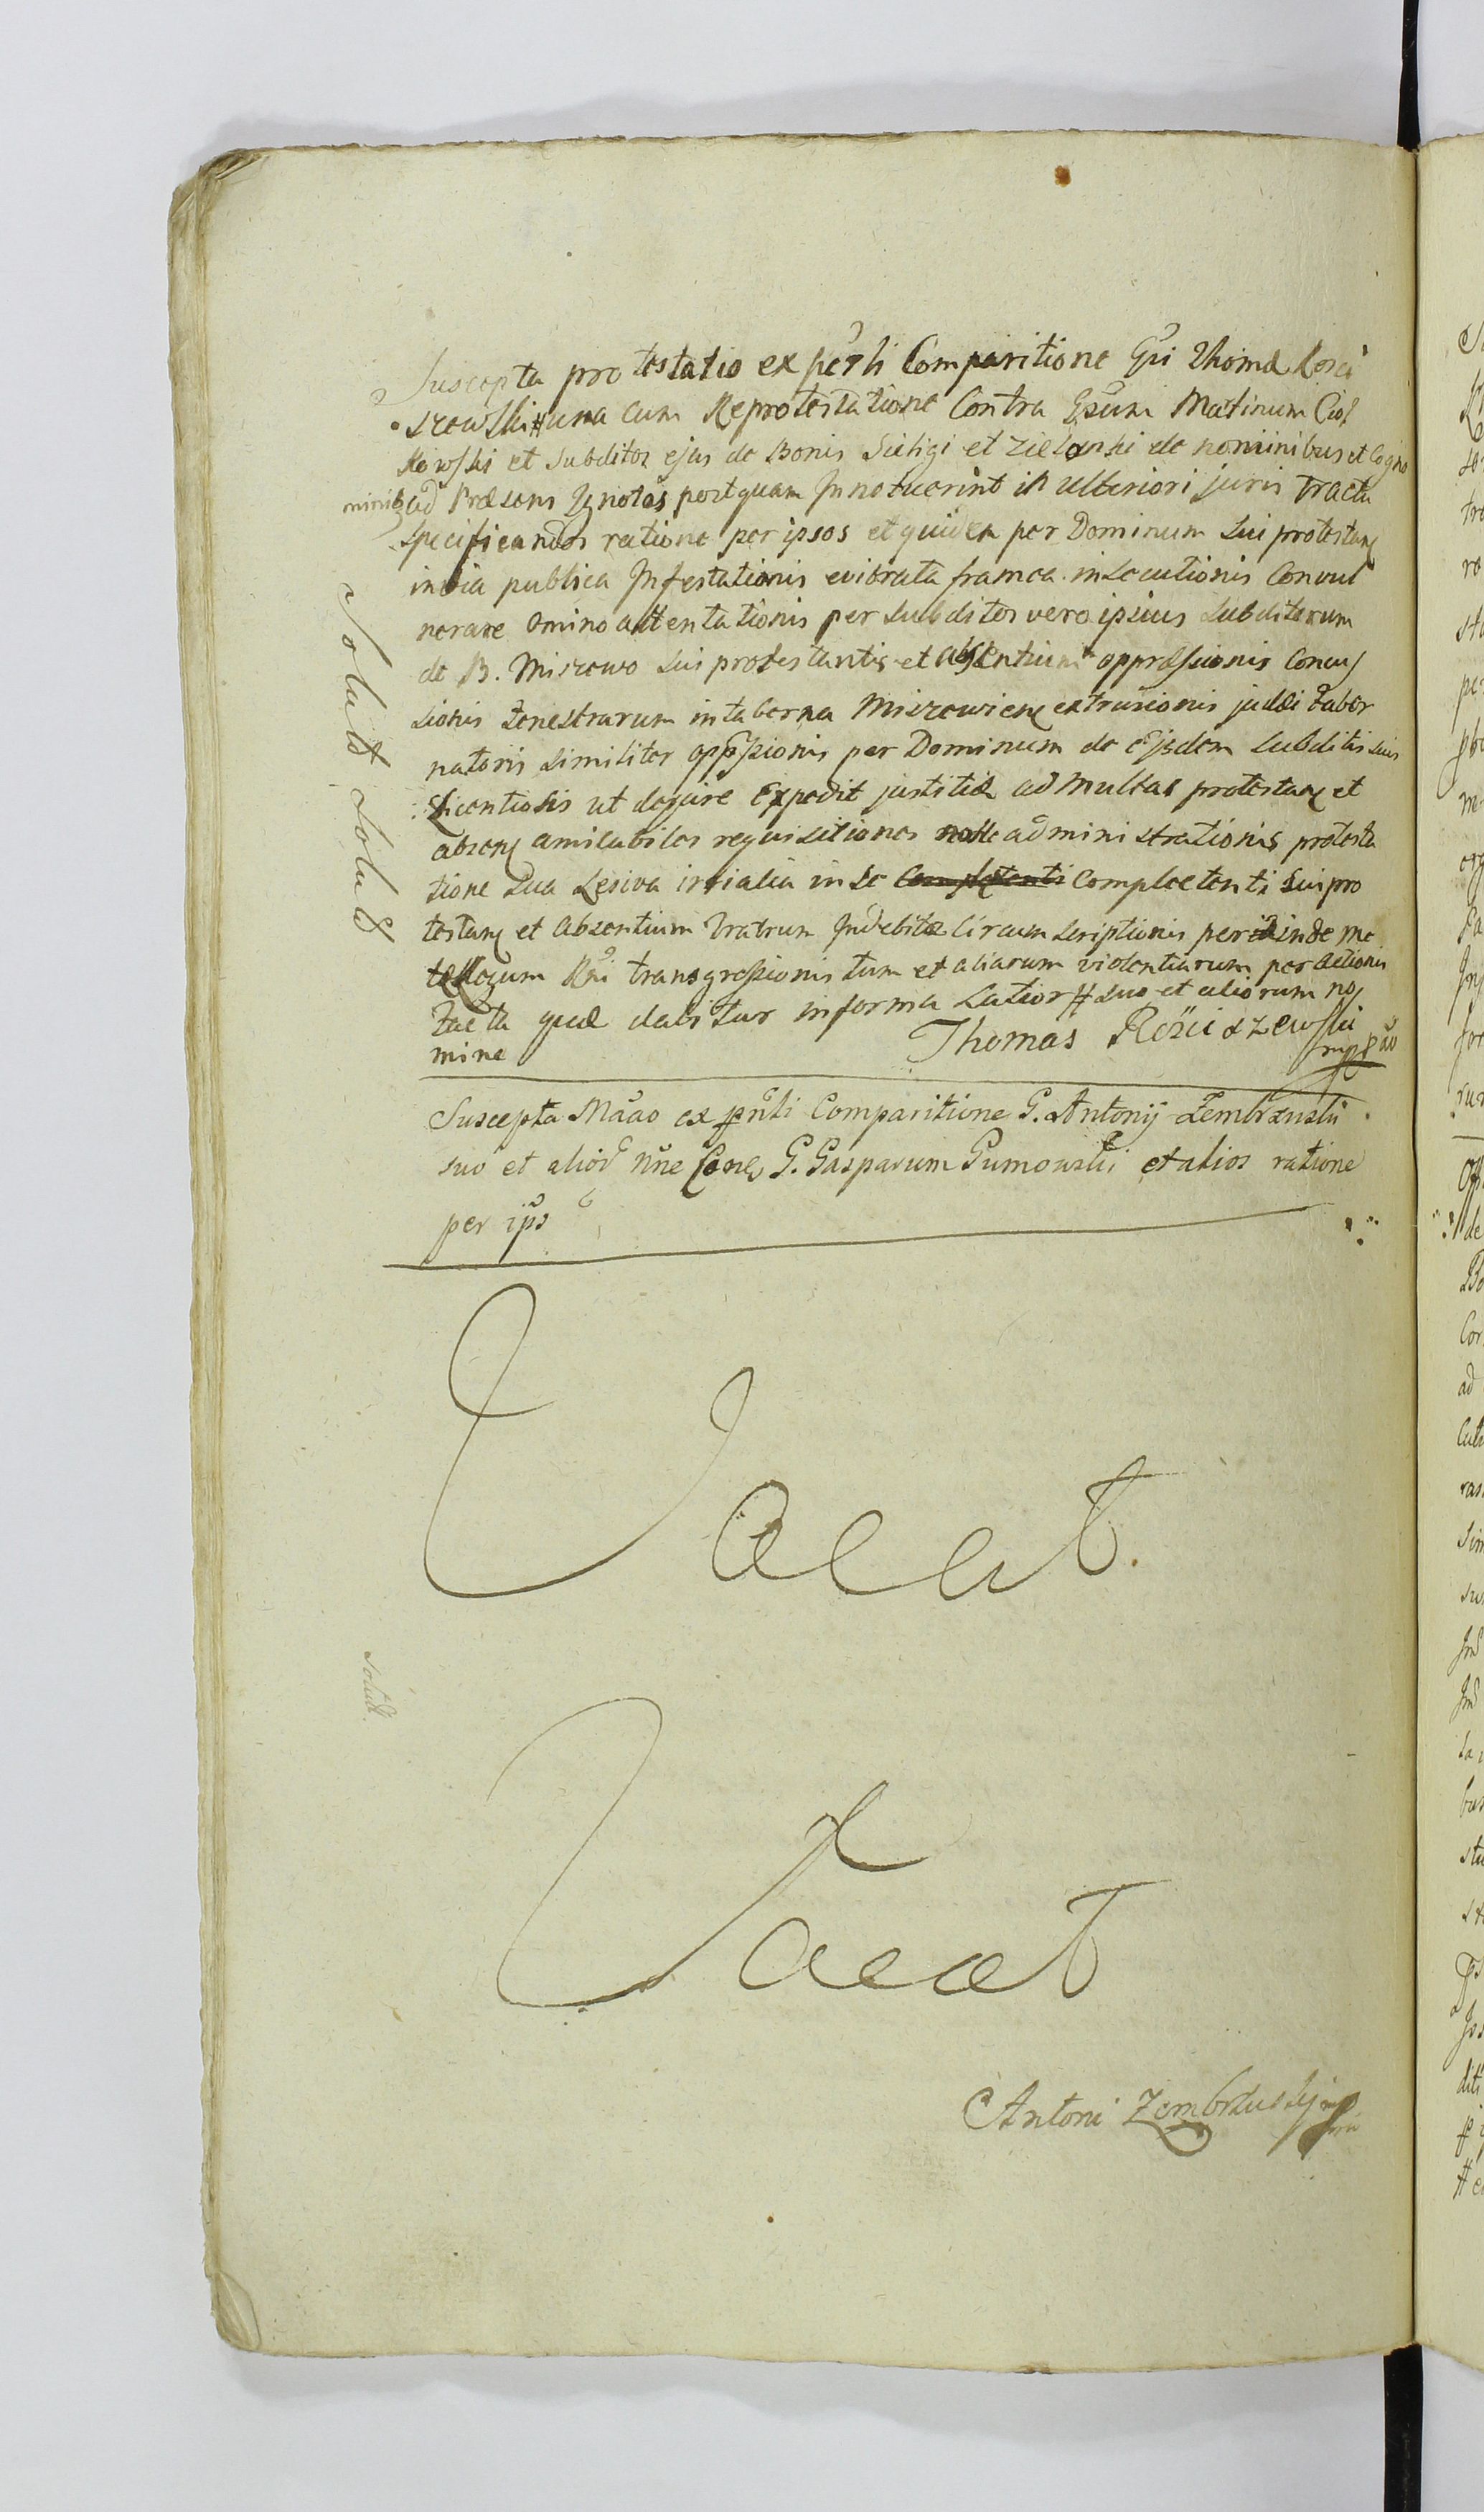 Suscepta protestatio ex persli Comparitione Gsi Thomæ Rosci
szewski # una cum Reprotestatione Contra Gsum Martinum Ciol
Kowski et subditos ejus de Bonis Suligi et Zielonki de nominibus et Cogno
minibz ad Præsens Ignotos postquam Innotuerint in ulteriori juris tractu
specificandos ratione per ipsos et quidem per Dominum sui protestanς
in via publica Infestationis evibrata framea insecutionis Convul
nerare omino attentationis per subditos vero ipsius subditorum
de B. Miszewo sui protestantis et absentium oppræssionis Concus
sionis fenestrarum in taberna Miszewienς extrusionis judæi taber
natoris similiter oppssionis per Dominum de ejsdem subditis suis
Licentiosis ut de jure Expedit justitiæ ad multas protestanς et
absenς amicabiles requisitiones non administrationis protesta
tione sua Lesiva in se Complectenti Complectenti sui pro
testanς et absentium fratrum Indebitæ Circumscriptionis perinde me
tæ Legum Rni transgressionis tum et aliarum violentiarum peractionis
facta quæ dabitur in forma Latior # suo et aliorum no
mine
Thomas Rościszewski
mpp
Solvit Solvit
Suscepta Mãão ex pñli Comparitione G. Antonij Zembrzuski
suo et alior nñe Cone G. Gasparum Gumowski et alios ratione
per ips
Vacat.
Solvit
Vacat
Antoni Zembrzuskij mp